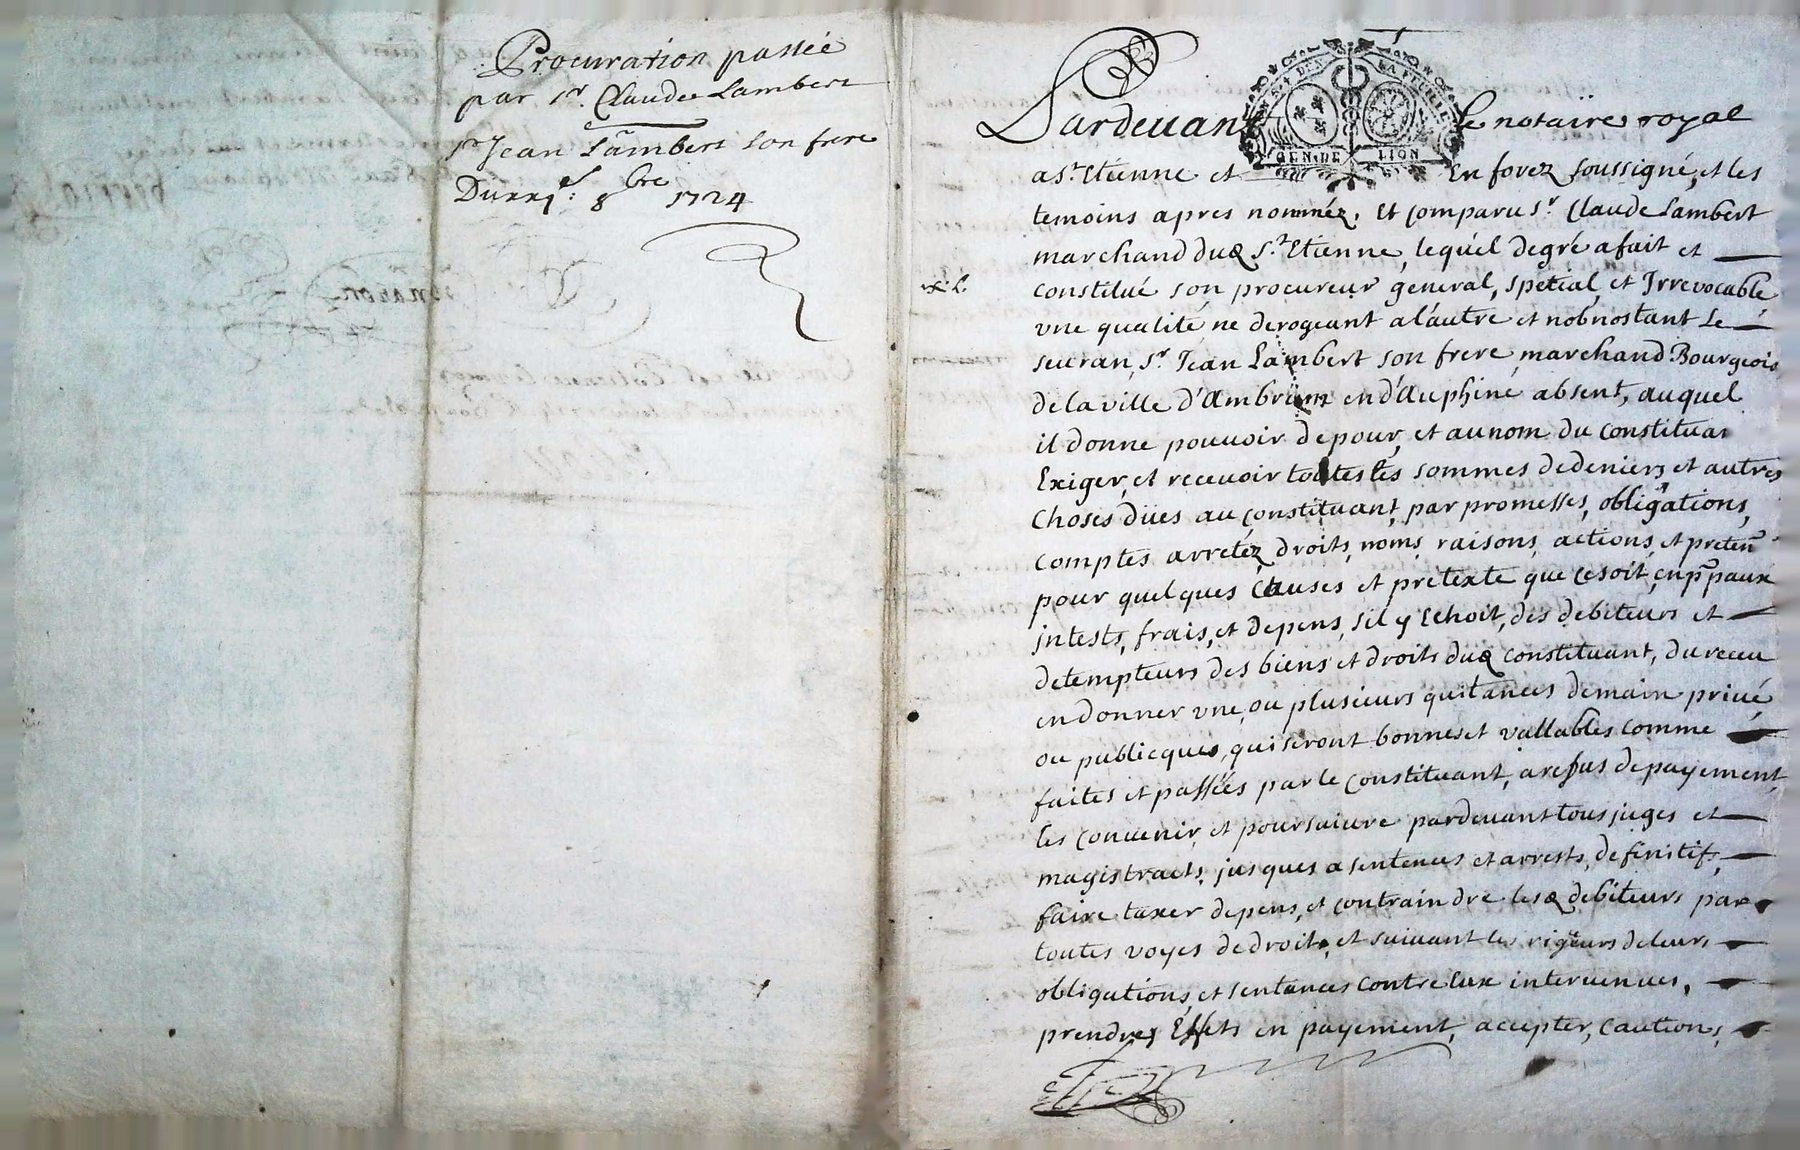 Procuration passée
par Sr. Claude Lambert
Sr Jean Lambert son frere
Du 8bre 1724
Pardevant le notaïre royal
GEN.DE LION
a St. Etienne et En forez soussigné, et les
temoins apres nommez, Et comparu Sr. Claude Lambert
marchand dud St. Etienne, lequel de gré a fait et
constitué son procureur general, spetial, et Irrevocable
une qualité ne derogeant a l'autre et nobnostant Le
seuran, Sr. Jean Lambert son frere, marchand Bourgeois
de la ville d'Ambrum en d'Auphiné absent, auquel
il donne pouvoir de pour, et au nom du constituan
Exiger, et recevoir toutes les sommes de deniers et autres
Choses dües au constituant, par promesses, obligations,
comptes arretez, droits, noms, raisons, actions, et preten
pour quelques causes et pretexte que ce soit, en ppaux
jntests, frais, et depens, s'il y Echoit, des debiteurs et
detempteurs des biens et droits dud constituant, du receu
en donner une, ou plusieurs quitances de main privé
ou publicques, qui seront bonnes et vallables comme
faites et passées par le constituant, a refus de payement,
les convenir, et poursuivre pardevant tous juges et
magistracts, jusques a sentences et arrests, definitifs,
faire taxer depens, et contraindre lesd debiteurs par
toutes voyes de droit, et suivant les rigeurs de leurs
obligations, et sentances contre Eux intervenues,
prendres Effets en payement, accepter, cautions,